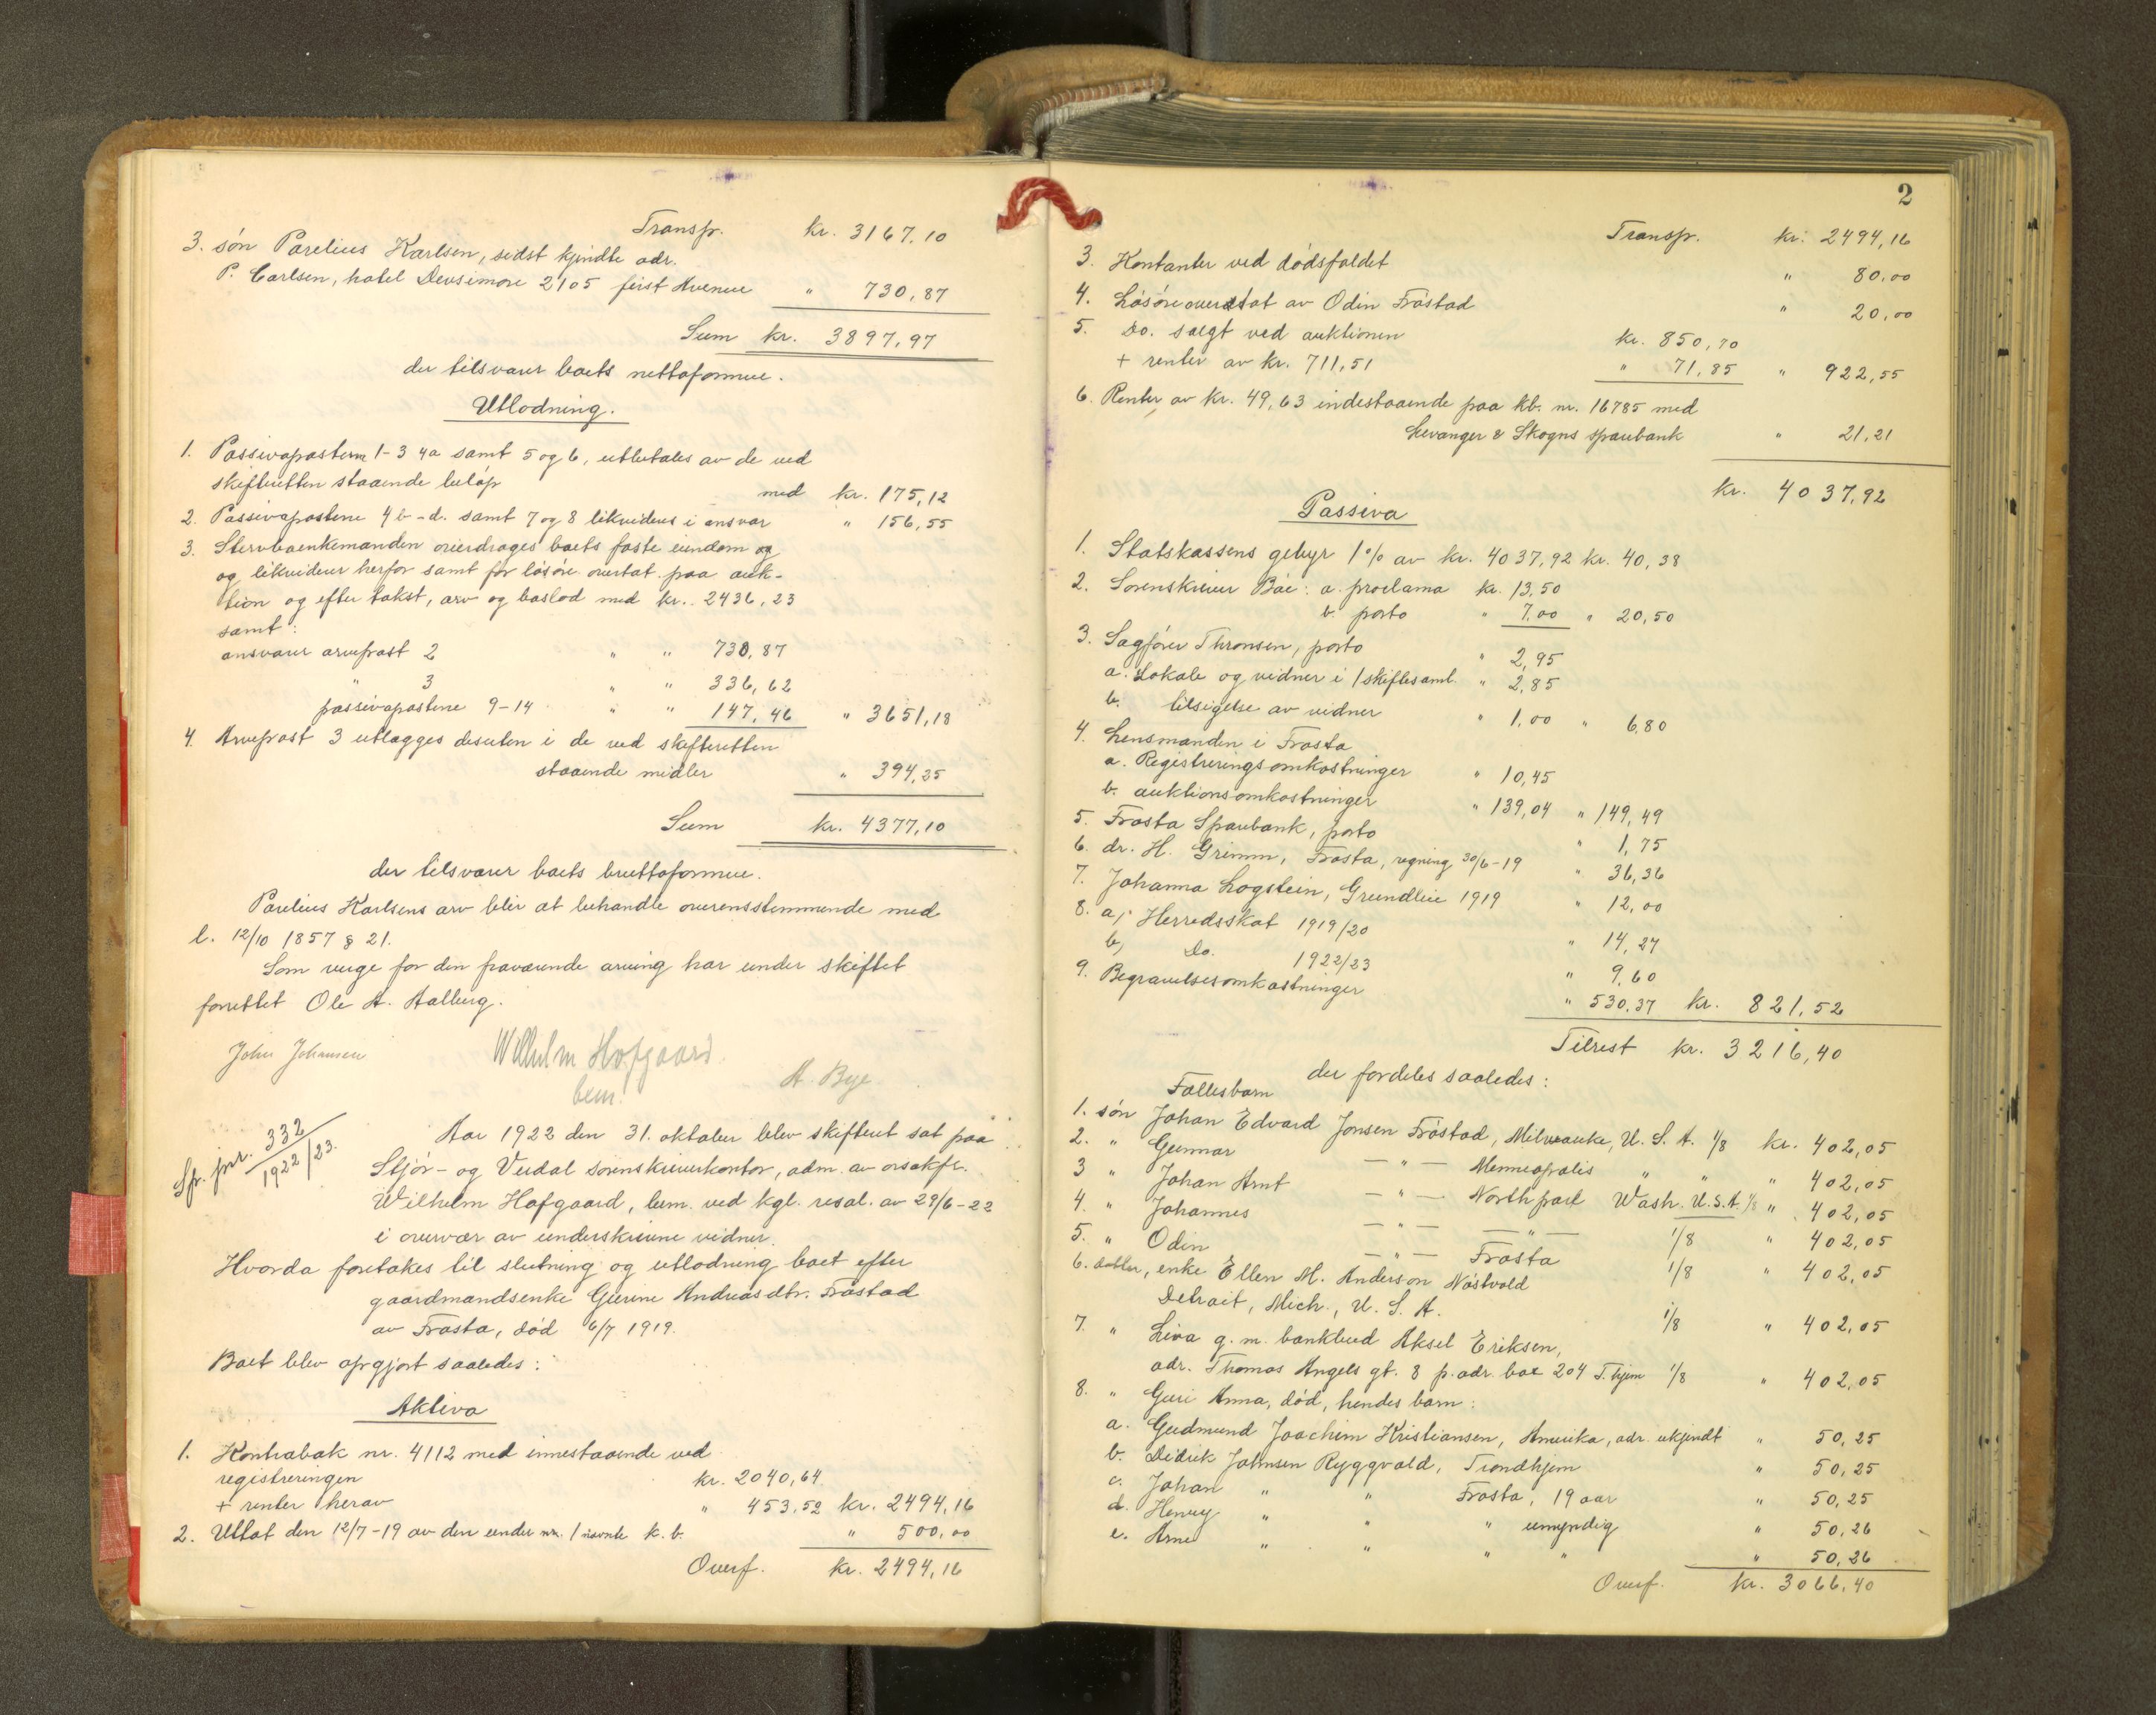 Transp. kr. 3167,10
3. søn Parelius Karlsen, sidst kjendte adr.
P. Carlsen, hotel Densimore 2105 first Avenue " 730,87
Sum kr. 3897,97
der tilsvarer boets nettoformue.
Utlodning.
1. Passivaposterne 1-3 4a samt 5 og 6, utbetales av de ved
skifteretten staaende beløp med kr. 175,12
2. Passivapostene 4 b-d. samt 7 og 8 likvideres i ansvar " 156,55
3. Stervboenkemanden overdrages boets faste eiendom og
og likviderer herfor samt for løsøre overtat paa auk-
tion og efter takst, arv og boslod med kr. 2436,23
samt:
ansvarer arvepost 2 " " 730,87
" 3 " " 336,62
passivapostene 9-14 " " 147,46 " 3651,18
4. Arvepost 3 utlægges desuten i de ved skifteretten
staaende midler " 394,25
Sum kr. 4377,10
der tilsvarer boets bruttoformue.
Parelius Karlsens arv blir at behandle overensstemmende med
l. 12/10 1857 § 21.
Som verge for den fraværende arving har under skiftet
forrettet Ole A. Aalberg.
John Johansen Wilhelm Hofgaard A. Bye
bem.
Sp. jnr. 332
1922/23.
Aar 1922 den 31. oktober blev skifteret sat paa
Stjør- og Verdal sorenskriverkontor, adm. av orsakfr.
Wilhelm Hofgaard, bem. ved kgl. resol. av 29/6-22
i overvær av underskrevne vidner.
Hvorda foretakes til slutning og utlodning boet efter
gaardmandsenke Gurine Andreasdtr. Frøstad
av Frosta, død 6/7 1919.
Boet blev opgjort saaledes:
Aktiva
1. Kontrabok nr. 4112 med innestaaende ved
registreringen kr. 2040,64
+ renter herav " 453,52 kr. 2494,16
2. Uttat den 12/7-19 av den under nr. 1 nævnte k. b. " 500,00
Overf. kr. 2494,16
2
Transp. kr. 2494,16
3. Kontanter ved dødsfaldet " 80,00
4. Løsøre overtat av Odin Frøstad " 20,00
5. Do. solgt ved auktionen kr. 850,70
+ renter av kr. 711,51 " 71,85 " 922,55
6. Renter av kr. 49,63 indestaaende paa kb. nr. 16785 med
Levanger & Skogns sparebank " 21,21
kr. 4037,92
Passiva
1. Statskassens gebyr 1% av kr. 4037,92 kr. 40,38
2. Sorenskriver Bäe: a. proclama kr. 13,50
b. porto " 7,00 " 20,50
3. Sagfører Thronsen, porto " 2,95
a. Lokale og vidner i 1 skiftesaml. " 2,85
b. tilsigelse av vidner " 1,00 " 6,80
4. Lensmanden i Frosta
a. Registreringsomkostninger " 10,45
b. auktionsomkostninger " 139,04 " 149,49
5. Frosta Sparebank, porto " 1,75
6. dr. H. Grimm, Frosta, regning 30/6-19 " 36,36
7. Johanna Logstein, Grundleie 1919 " 12,00
8. a) Herredsskat 1919/20 " 14,27
b) Do. 1922/23 " 9,60
9. Begravelsesomkostninger " 530,37 kr. 821,52
Tilrest kr. 3216,40
der fordeles saaledes:
Fællesbarn
1. søn Johan Edvard Jonsen Frøstad, Milwauke, U. S. A. 1/8 kr. 402,05
2. " Gunnar — " — Menneapolis " " " 402,05
3 " Johan Arnt — " — Northport Wash. U.S.A. 1/8 " 402,05
4. " Johannes — " — — " — 1/8 " 402,05
5. " Odin — " — Frosta 1/8 " 402,05
6. datter, enke Ellen M. Anderson Nøstvold
Detroit, Mich., U. S. A. 1/8 " 402,05
7. " Liva g. m. bankbud Aksel Eriksen,
adr. Thomas Angels gt. 8 p. adr. box 204 T.hjem 1/8 " 402,05
8. " Guri Anna, død, hendes barn:
a. Gudmund Joachim Kristiansen, Amerika, adr. ukjendt " 50,25
b. Didrik Johnsen Ryggvold, Trondhjem " 50,25
c. Johan " " Frosta, 19 aar " 50,25
d. Henry " " " umyndig " 50,26
e. Arne " " " " " 50,26
Overf. kr. 3066,40